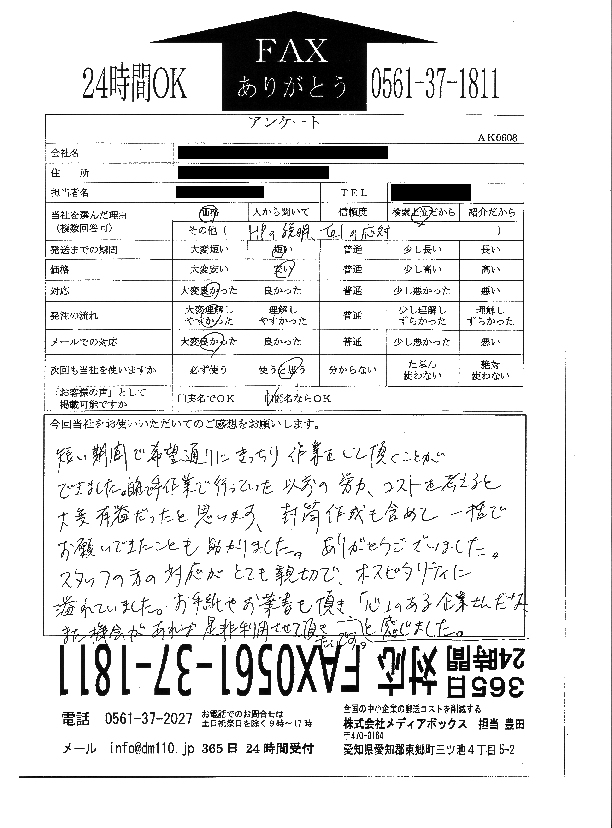 FAX
ありがとう
24時間OK
0561-37-1811
アンケート
AK0608
会社名
住 所
担当者名 TEL
当社を選んだ理由 価格 人から聞いて 信頼度 検索上位だから 紹介だから
(複数回答可) その他( HPの説明、Telの応対 )
発送までの期間 大変短い 短い 普通 少し長い 長い
価格 大変安い 安い 普通 少し高い 高い
対応 大変良かった 良かった 普通 少し悪かった 悪い
発注の流れ 大変理解しやすかった 理解しやすかった 普通 少し理解しずらかった 理解しずらかった
メールでの対応 大変良かった 良かった 普通 少し悪かった 悪い
次回も当社を使いますか 必ず使う 使うと思う 分からない たぶん使わない 絶対使わない
「お客様の声」として掲載可能ですか □実名でOK □匿名ならOK
今回当社をお使いいただいてのご感想をお願いします。
短い期間で希望通りにきっちり作業をして頂くことが
できました。 手作業で行っていた以前の労力、コストを考えると
大変有益だったと思います。封筒作成も含めて一括で
お願いできたことも助かりました。ありがとうございました。
スタッフの方の対応がとても親切で、ホスピタリティに
溢れていました。お手紙やお葉書も頂き「心のある企業さんだな
また機会があれば是非利用させて頂きたいです。」と感じました。
365日
24時間
対応 FAX0561-37-1811
電話 0561-37-2027 お電話でのお問合せは
土日祝祭日を除く9時~17時
メール info@dm110.jp 365日 24時間受付
全国の中小企業の郵送コストを削減する
株式会社メディアボックス 担当 豊田
〒470-0164
愛知県愛知郡東郷町三ツ池4丁目5-2